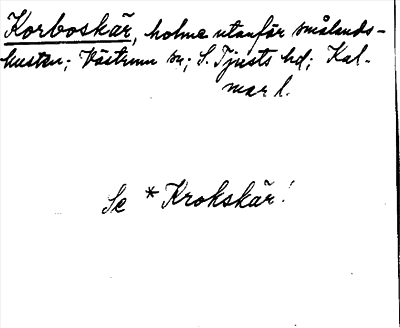 Korboskär, holme utanför smålands-
kusten; Västrum sn; S. Tjusts hd; Kal-
mar l.
Se *Krokskär!